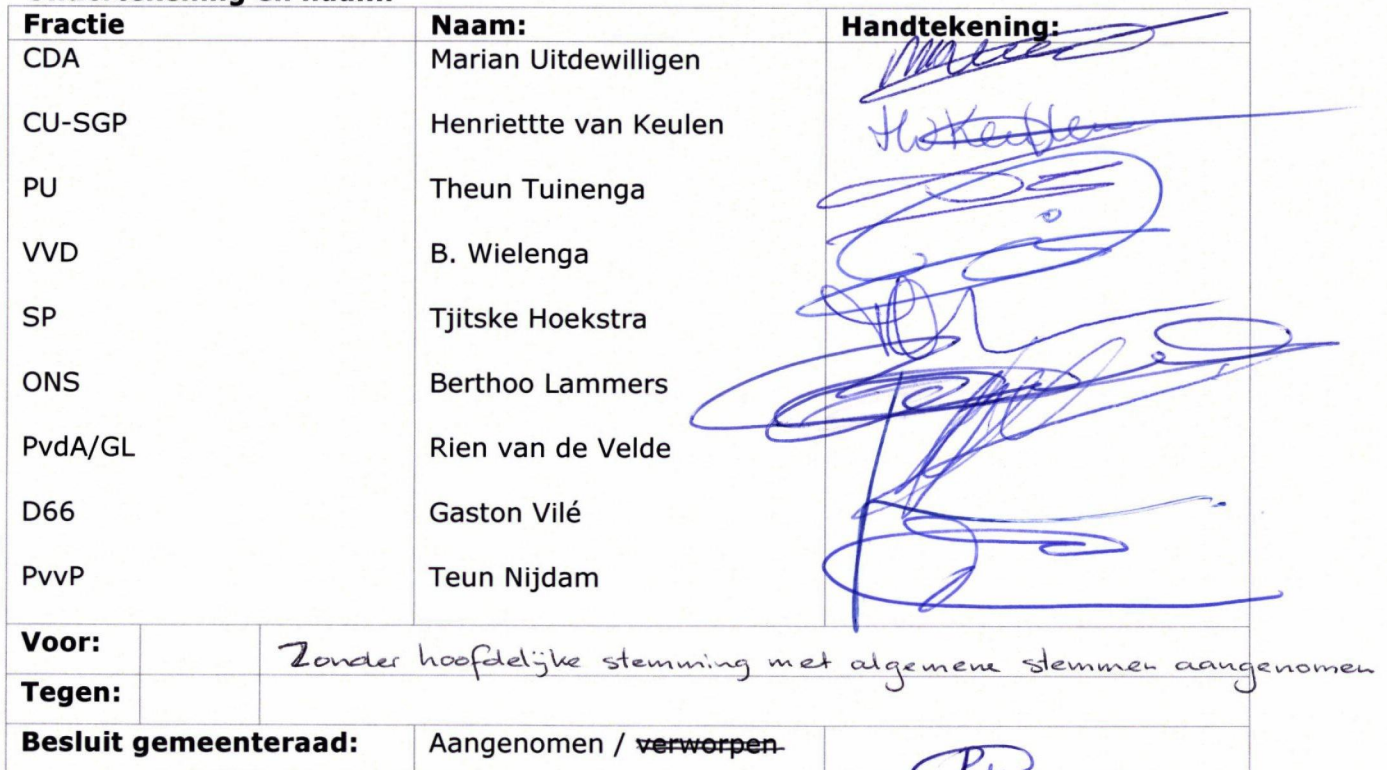 Fractie Naam: Handtekening:
CDA Marian Uitdewilligen
CU-SGP Henriettte van Keulen
PU Theun Tuinenga
VVD B. Wielenga
SP Tjitske Hoekstra
ONS Berthoo Lammers
PvdA/GL Rien van de Velde
D66 Gaston Vilé
PvvP Teun Nijdam
Voor: Zonder hoofdelijke stemming met algemene stemmen aangenomen
Tegen:
Besluit gemeenteraad: Aangenomen / verworpen